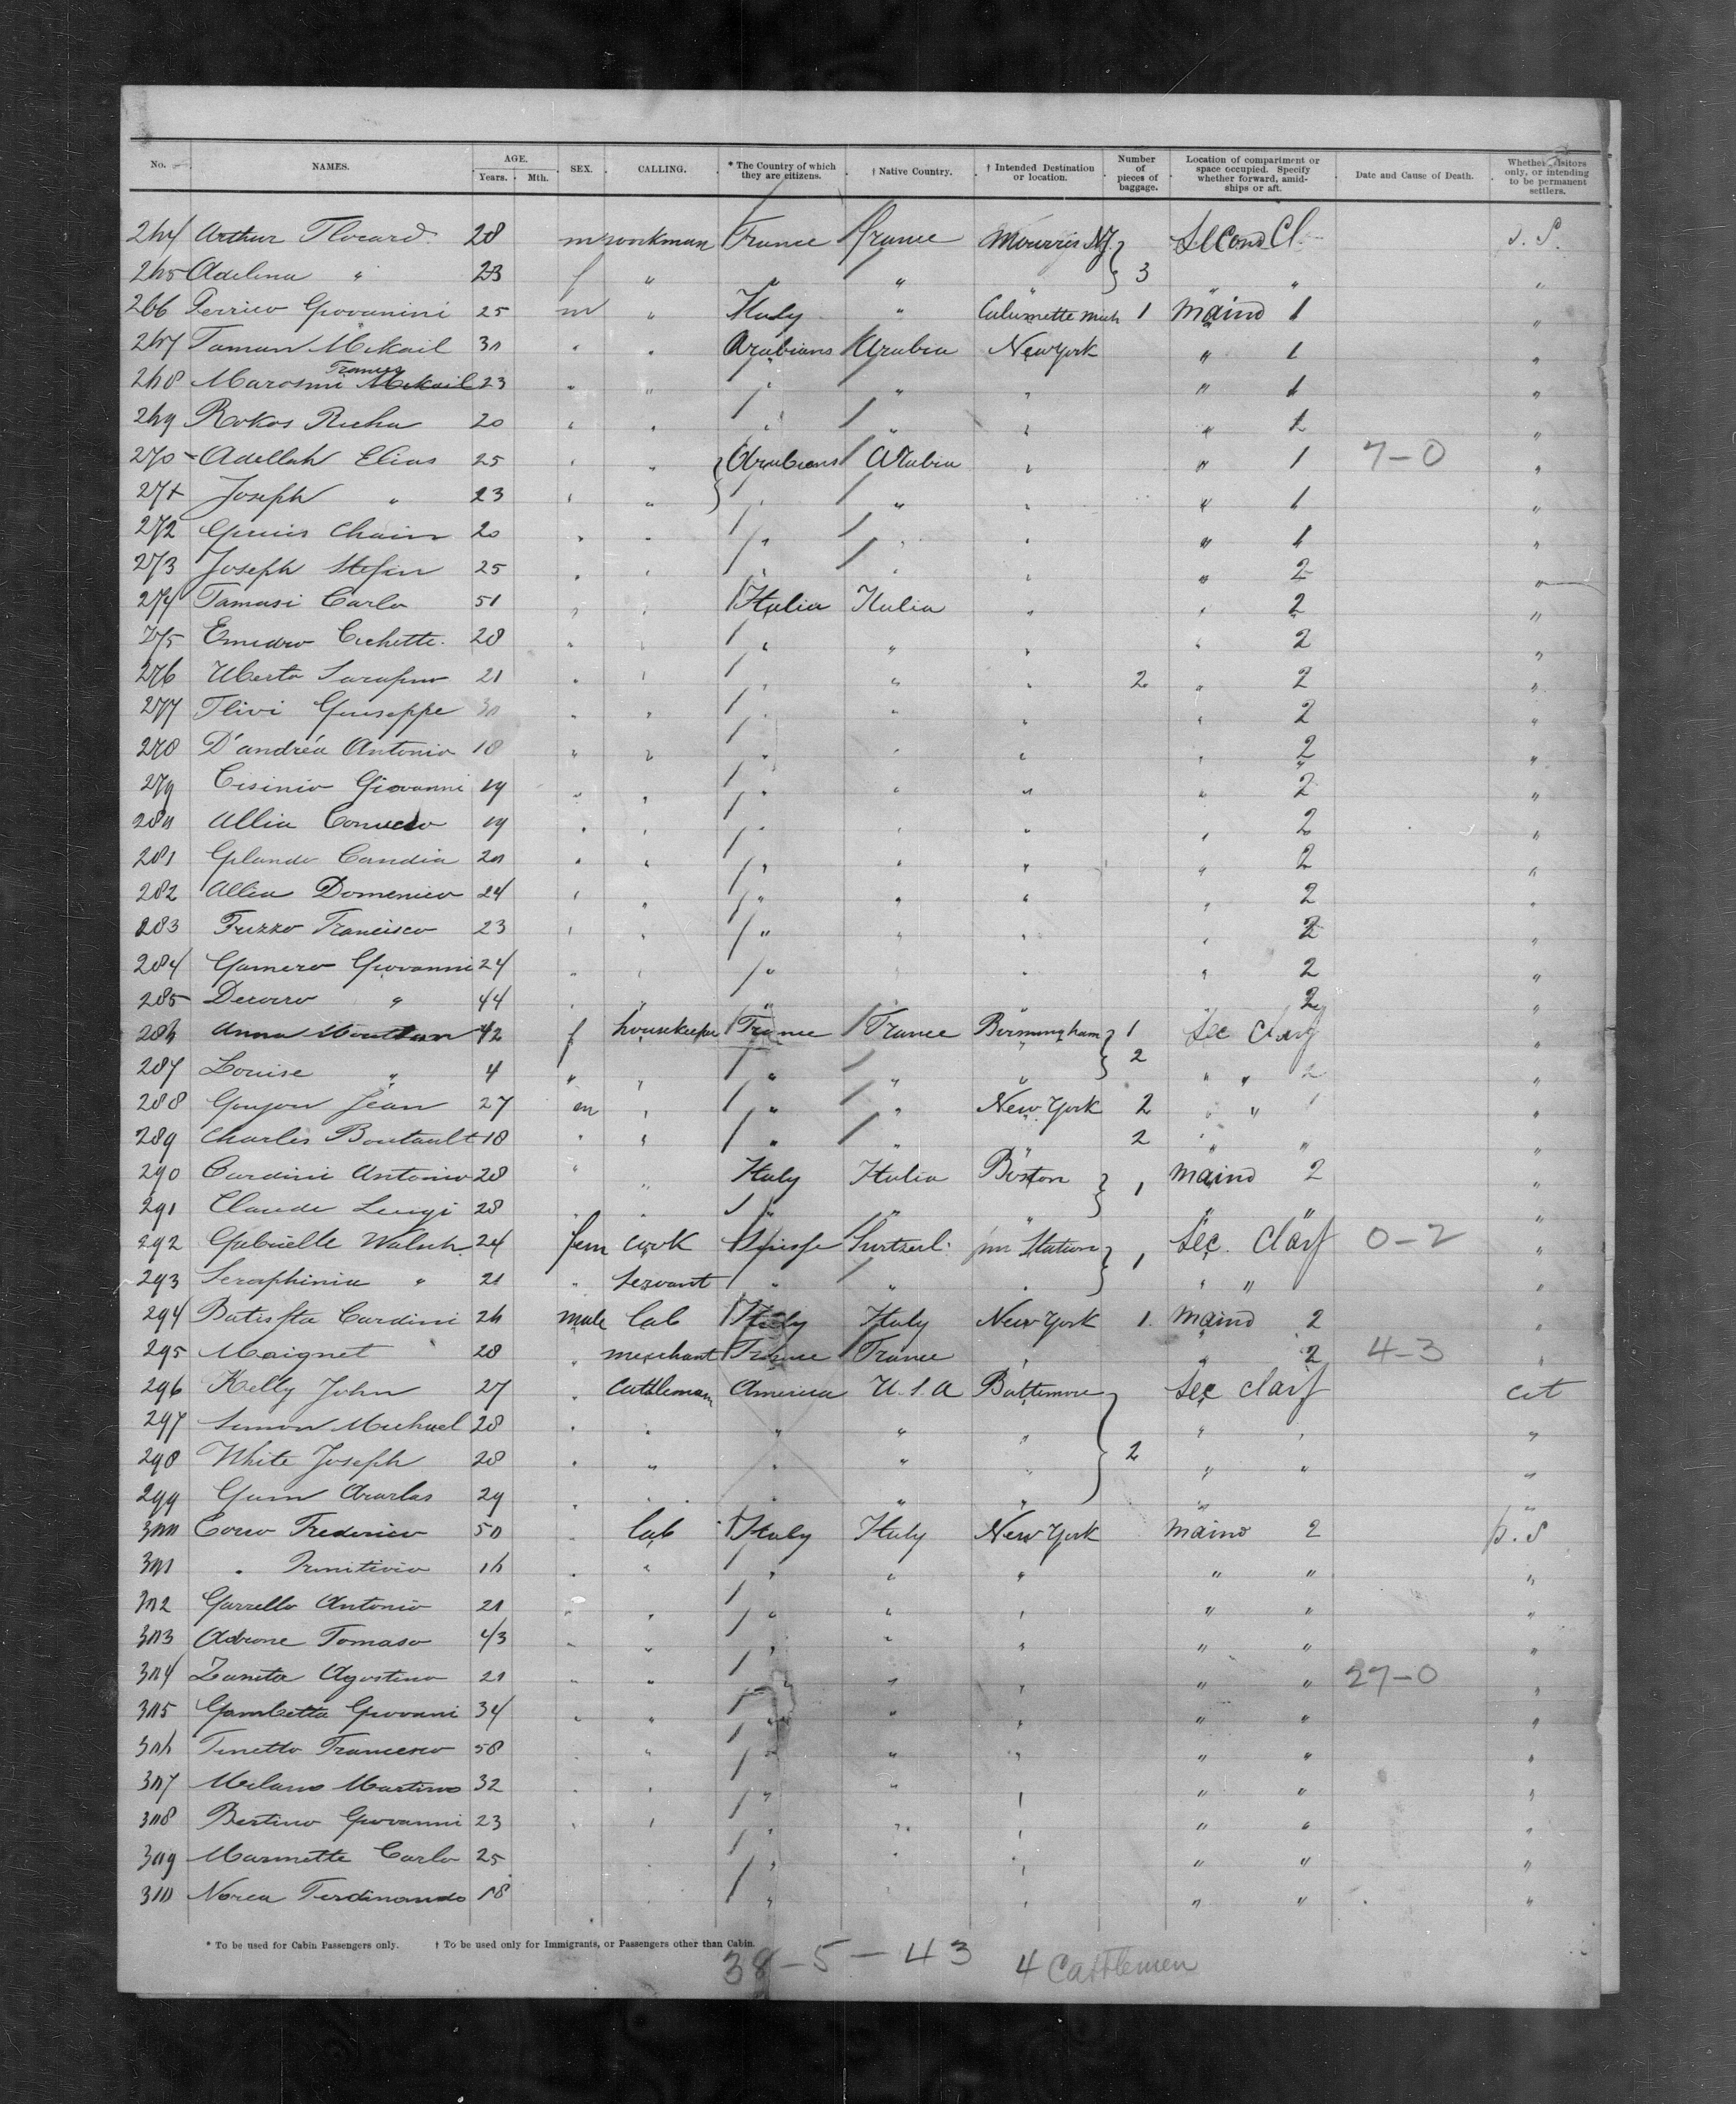 No. NAMES. AGE. Years. Mth. SEX. CALLING. * The Country of which they are citizens. † Native Country. † Intended Destination or location. Number of pieces of baggage. Location of compartment or space occupied. Specify whether forward, amidships or aft. Date and Cause of Death. Whether visitors only, or intending to be permanent settlers.
264 Arthur Flocard 28 m workman France france N.J. Second Cl.
265 Adelina " 23 f " " " " 3 " "
266 Giovanini 25 m " Italy " Calumette Mich 1 maind 1 "
267 Taman Mikail 30 " " Arabians Arabia New York " 1 "
268 Marosmi Mikail 23 " " " " " " 1 "
269 Rokos Richa 20 " " " " " " 1 "
270 Adellah Elias 25 " " Arabians Arabia " " 1 7-0 "
271 Joseph " 23 " " " " " " 1 "
272 Chain 20 " " " " " " 1 "
273 Joseph Stefin 25 " " " " " " 2 "
274 Tamasi Carlo 51 " " Italia Italia " " 2 "
275 Cichette 28 " " " " " " 2 "
276 Uberto Sarafino 21 " " " " " 2 " 2 "
277 Flivi Giuseppe 30 " " " " " " 2 "
278 D'andréa Antonio 18 " " " " " " 2 "
279 Cisinio Giovanni 19 " " " " " " 2 "
280 Allia 19 " " " " " " 2 "
281 Candia 20 " " " " " " 2 "
282 Allia Domenico 24 " " " " " " 2 "
283 Fuzzo Francisco 23 " " " " " " 2 "
284 Gamero Giovanni 24 " " " " " " 2 "
285 " 44 " " " " " " 2 "
286 Anna 42 f housekeeper France France Birmingham 1 Sec Class "
287 Louise " 4 " " " " " 2 " " "
288 Goujon Jean 27 m " " " New York 2 " " "
289 Charles Boutault 18 " " " " " 2 " " "
290 Cardini Antonio 28 " " Italy Italia Boston 1 maind 2 "
291 Claude Luigi 28 " " " " " " " "
292 Gabrielle Walsch 24 fem cook Switzerl. Station 1 Sec. Class 0-2 "
293 Seraphinia " 21 " servant " " " " " "
294 Batista Cardini 26 male lab Italy Italy New York 1 maind 2 "
295 Maignet 28 " merchant France France " " 2 4-3 "
296 Kelly John 27 " Cattleman America U.S.A Baltimore Sec class cit
297 Simon Michael 28 " " " " " " " "
298 White Joseph 28 " " " " " 2 " " "
299 29 " " " " " " "
300 Frederico 50 " lab Italy Italy New York maind 2 p.s
301 " Primitivio 16 " " " " " " " "
302 Garrello Antonio 21 " " " " " " " "
303 Tomaso 43 " " " " " " " "
304 Zaneta Agostino 21 " " " " " " " 27-0 "
305 Gambetta Giovani 34 " " " " " " " "
306 Tinetto Francesco 58 " " " " " " " "
307 Milano Martino 32 " " " " " " " "
308 Bertino Giovanni 23 " " " " " " " "
309 Marmette Carlo 25 " " " " " " "
310 Norea Ferdinando 18 " " " " " " "
* To be used for Cabin Passengers only. † To be used only for Immigrants, or Passengers other than Cabin.
38-5-43 4 Cattlemen